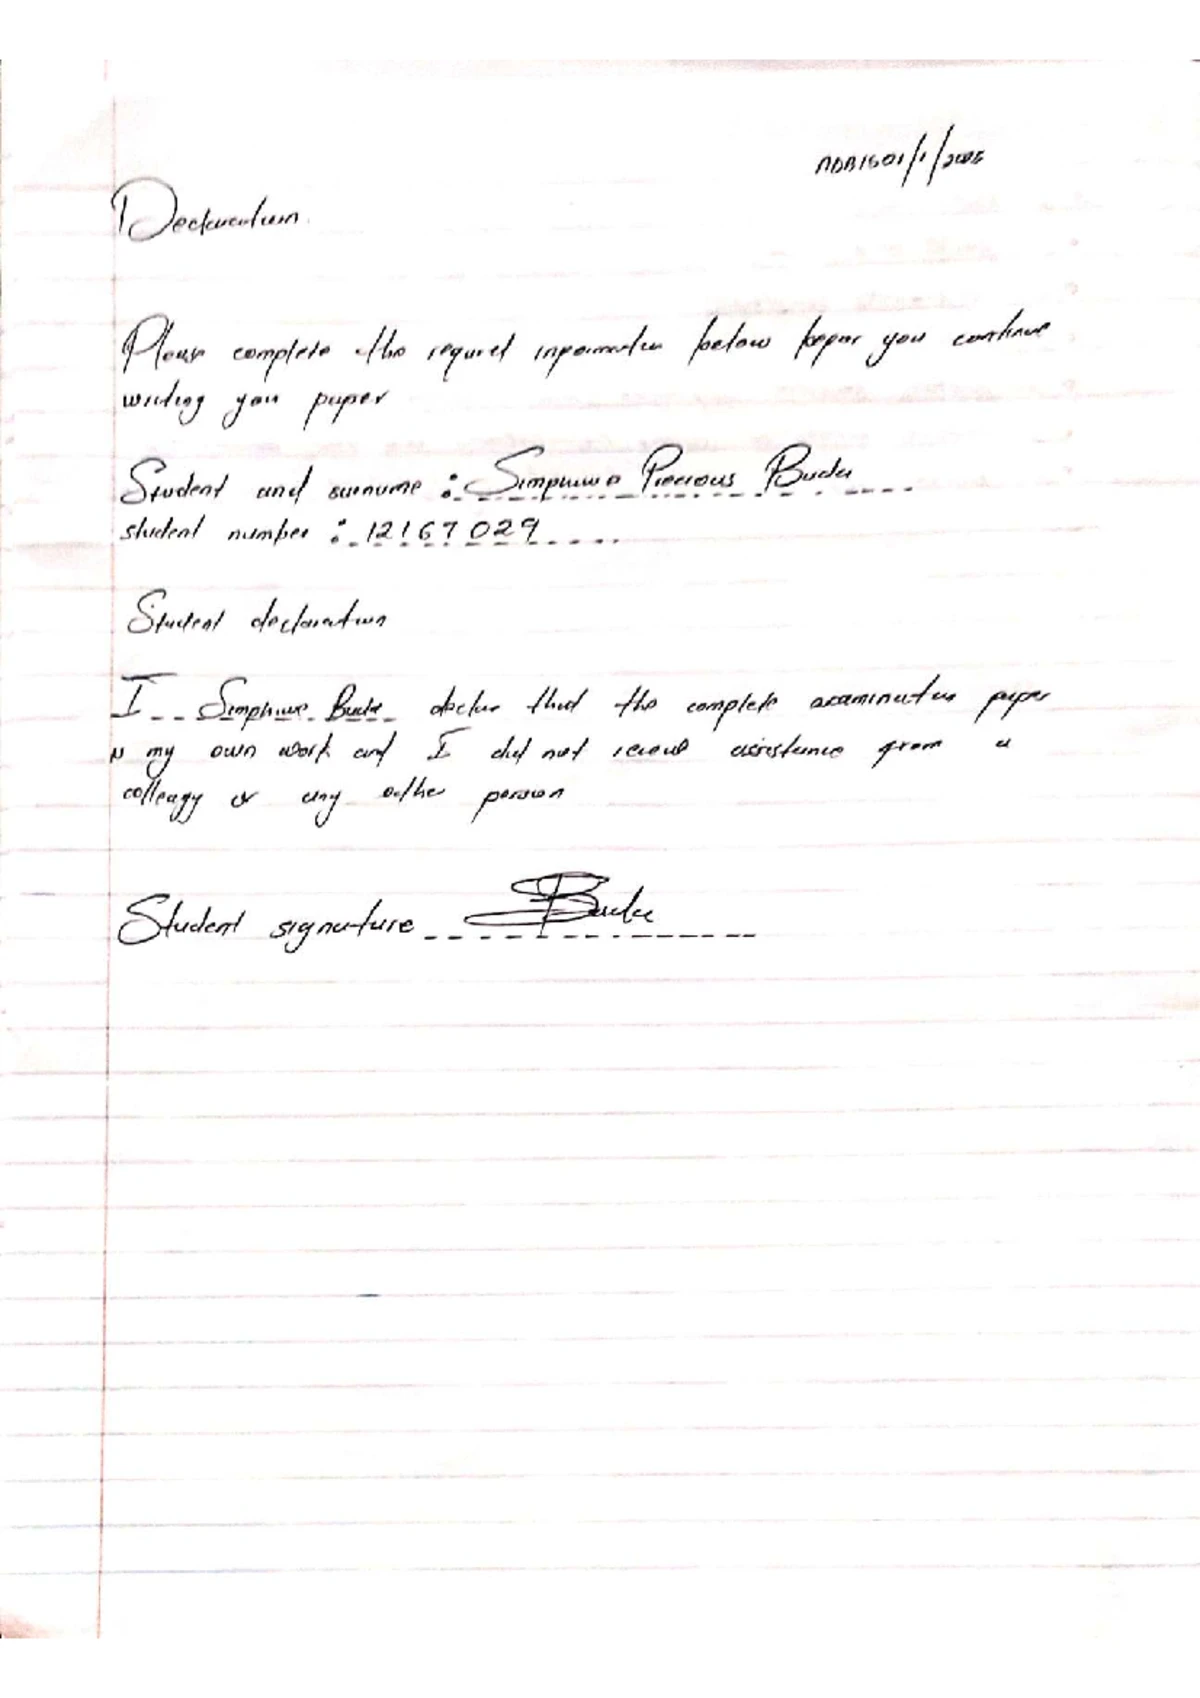 ADB1501/1/2025
Declaration
Please complete the requred information below befor you continue
writing you paper
Student and surname : Simphiwe Precious Buda
student number : 12167029
Student declaration
I Simphiwe Buda declar that the complete examination paper
is my own work and I did not receive assistance from a
colleagy or any other person
Student signature Buda